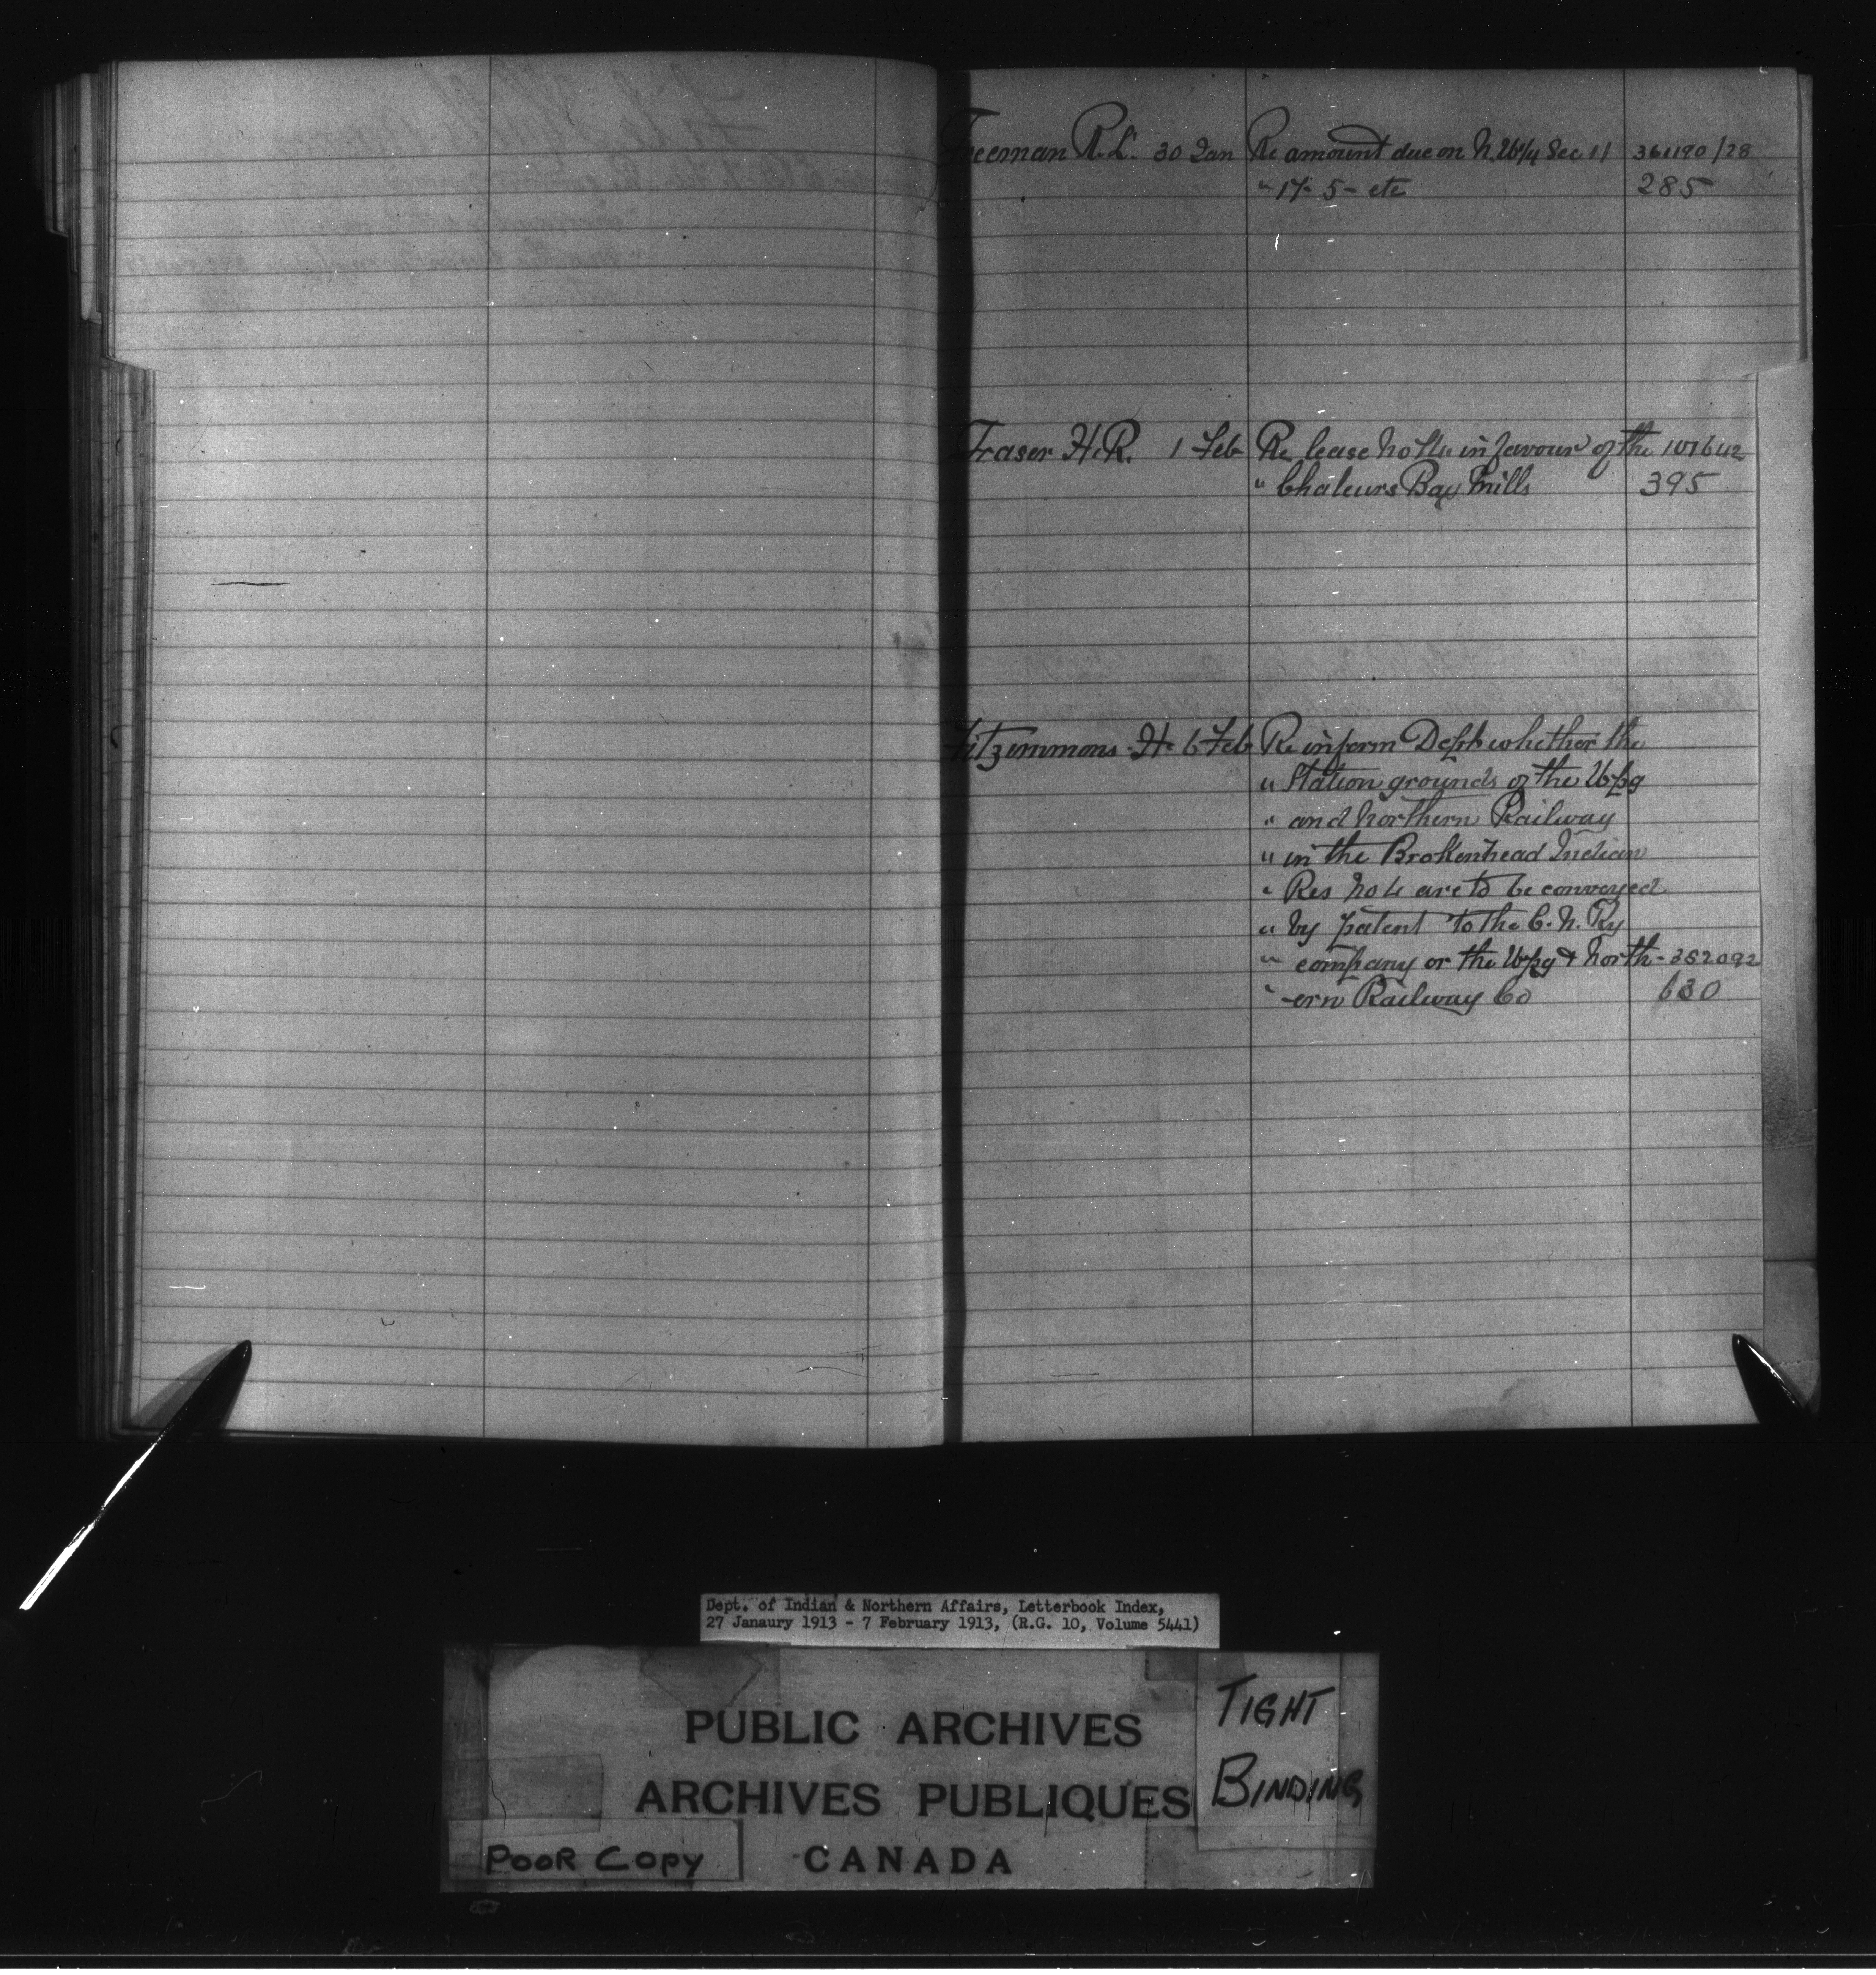 Freeman R.L. 30 Jan Re amount due on N.W 1/4 Sec 11 361190/28
" 17- 5- etc 285
Fraser H.R. 1 Feb Re lease No in favour of the 101642
" Chaleurs Bay Mills 395
Fitzimmons H 6 Feb Re inform Dept whether the
" Station grounds of the Wpg
" and Northern Railway
" in the Brokenhead Indian
" Res No 4 are to be conveyed
" by patent to the C. N. Ry
" company or the Wpg & North- 382092
" -ern Railway Co 630
Dept. of Indian & Northern Affairs, Letterbook Index,
27 Janaury 1913 - 7 February 1913, (R.G. 10, Volume 5441)
PUBLIC ARCHIVES
ARCHIVES PUBLIQUES
CANADA
TIGHT
BINDING
POOR COPY